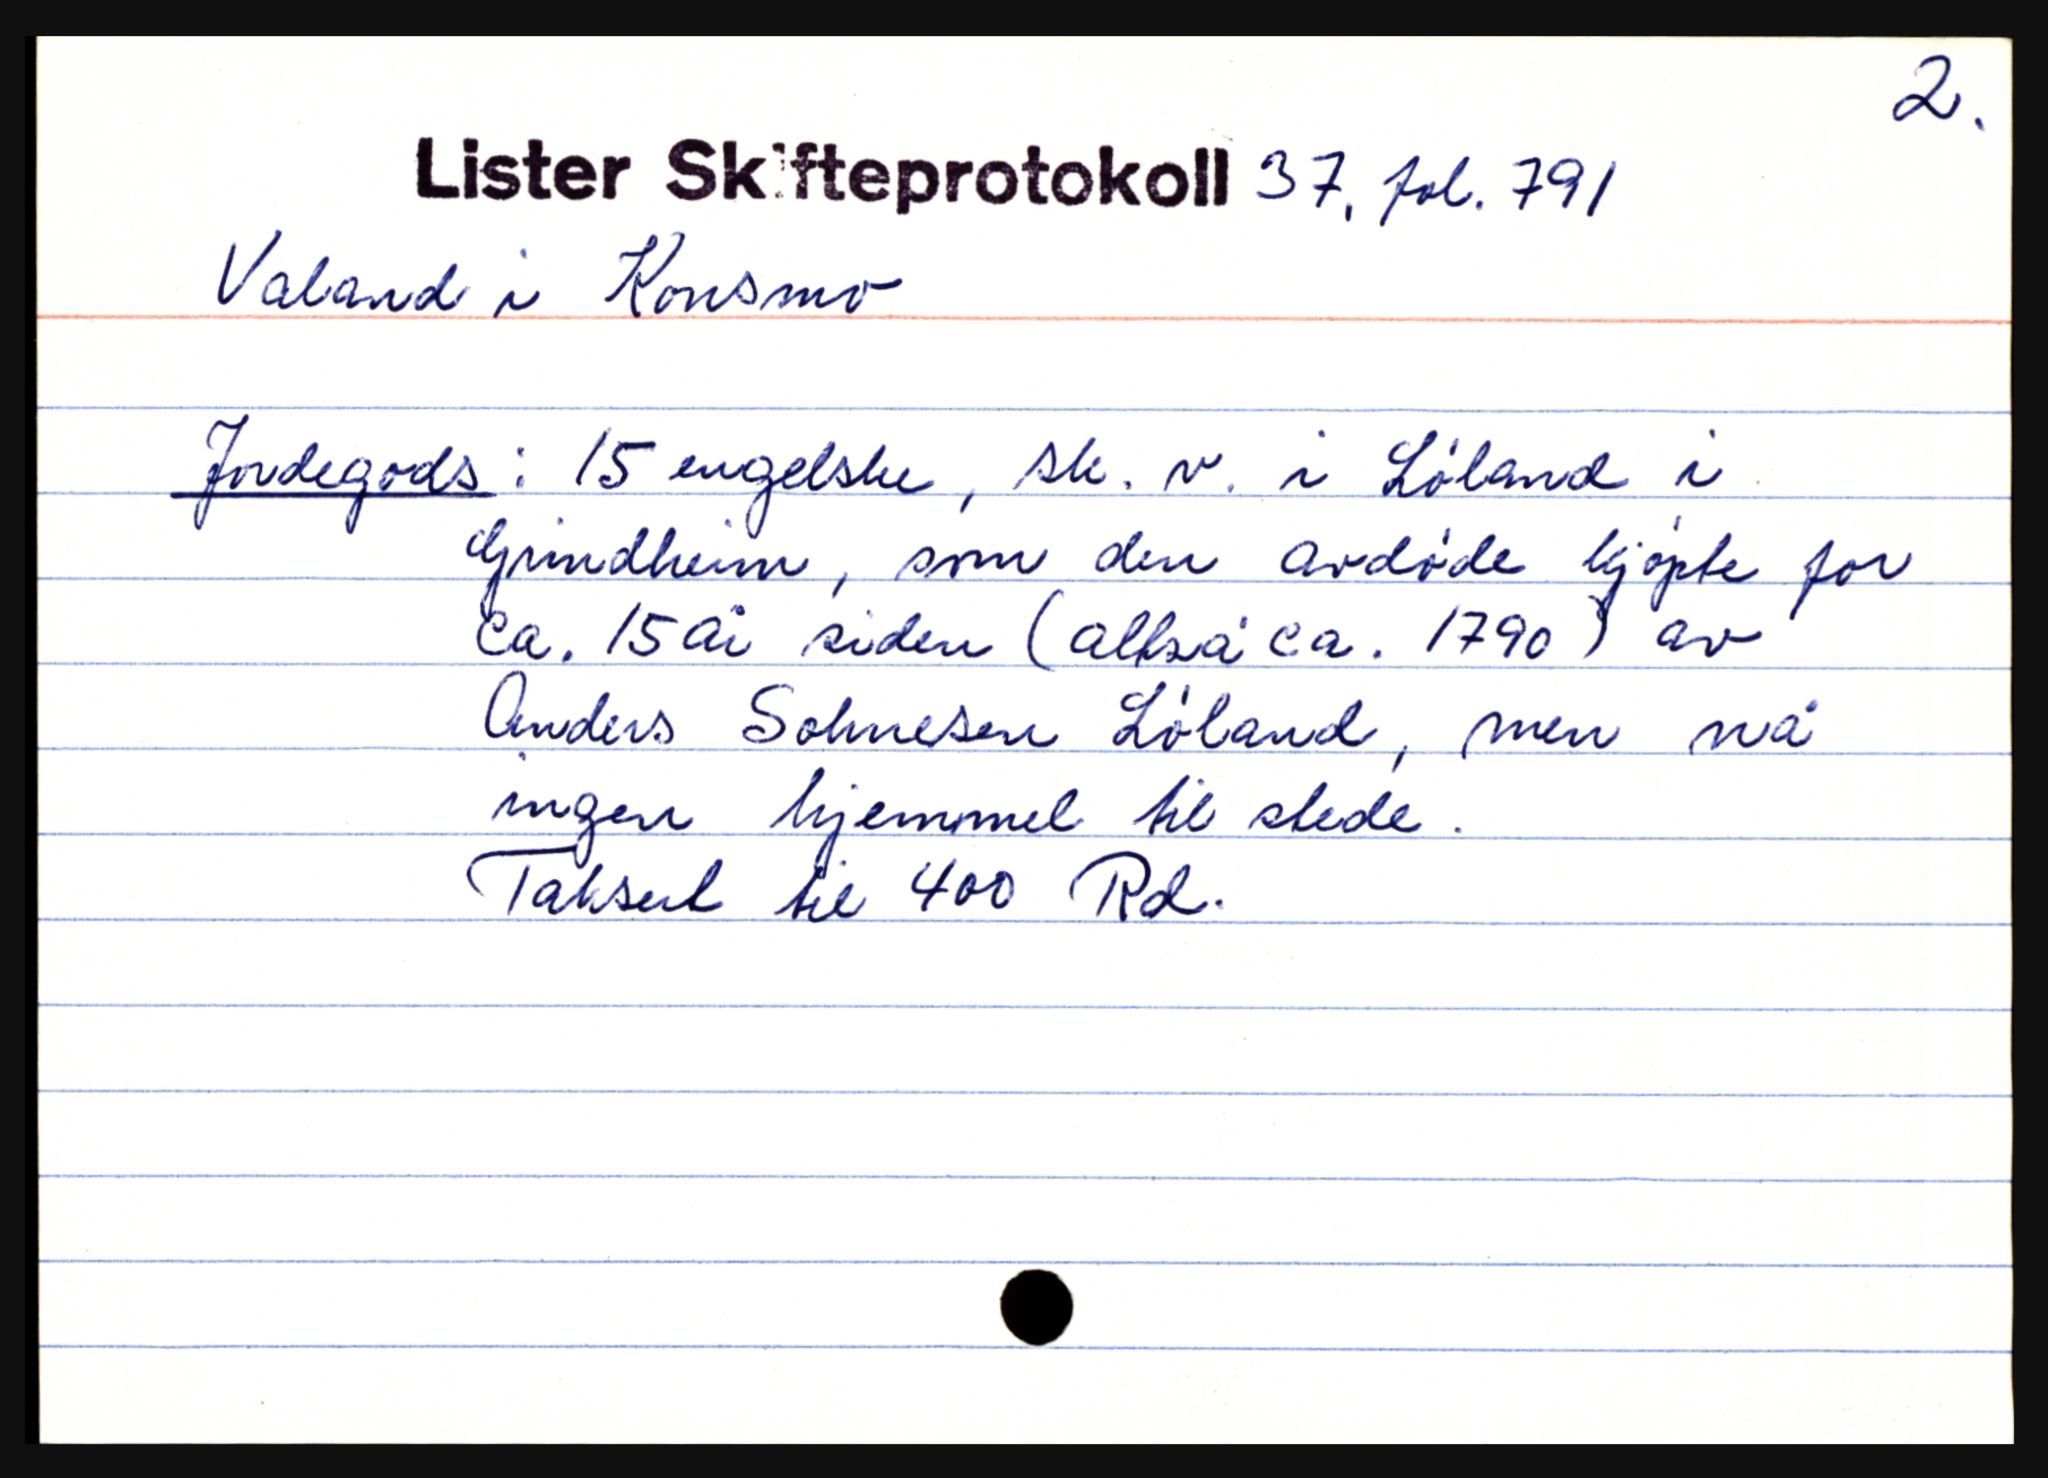 2.
Lister Skifteprotokoll 37, fol. 791
Valand i Konsmo
Jordegods: 15 engelske, sk. v. i Löland i
Grindheim, som den avdøde kjøpte for
ca. 15 år siden (altså ca. 1790) av
Anders Solmesen Löland, men nå
ingen hjemmel til stede.
Taksert til 400 Rd.